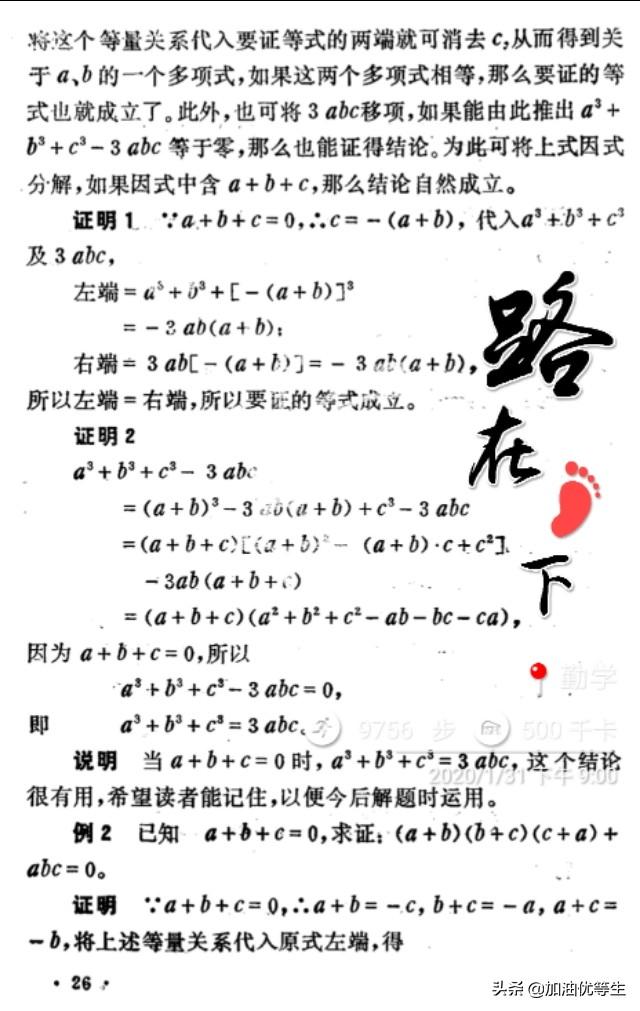 将这个等量关系代入要证等式的两端就可消去 c,从而得到关
于 a、b 的一个多项式,如果这两个多项式相等,那么要证的等
式也就成立了。此外,也可将 3 abc移项,如果能由此推出 a³+
b³+c³-3 abc 等于零,那么也能证得结论。为此可将上式因式
分解,如果因式中含 a+b+c,那么结论自然成立。
证明1 ∵a+b+c=0,∴c=-(a+b), 代入a³+b³+c³
及 3 abc,
左端=a³+b³+[-(a+b)]³
=-3 ab(a+b);
右端= 3 ab[-(a+b)]=- 3 ab(a+b),
所以左端=右端,所以要证的等式成立。
证明 2
a³+b³+c³- 3 abc
=(a+b)³-3 ab(a+b)+c³-3 abc
=(a+b+c)[(a+b)²- (a+b)·c+c²]
-3ab(a+b+c)
=(a+b+c)(a²+b²+c²-ab-bc-ca),
因为 a+b+c=0,所以
a³+b³+c³-3 abc=0,
即 a³+b³+c³=3 abc。
说明 当 a+b+c=0时, a³+b³+c³=3 abc, 这个结论
很有用,希望读者能记住,以便今后解题时运用。
例 2 已知 a+b+c=0,求证: (a+b)(b+c)(c+a)+
abc=0。
证明 ∵a+b+c=0,∴a+b=-c, b+c=-a, a+c=
-b,将上述等量关系代入原式左端,得
· 26 ·
路
在
下
勤学
9756 步 500 千卡
2020/1/31 下午 9:00
头条 @加油优等生